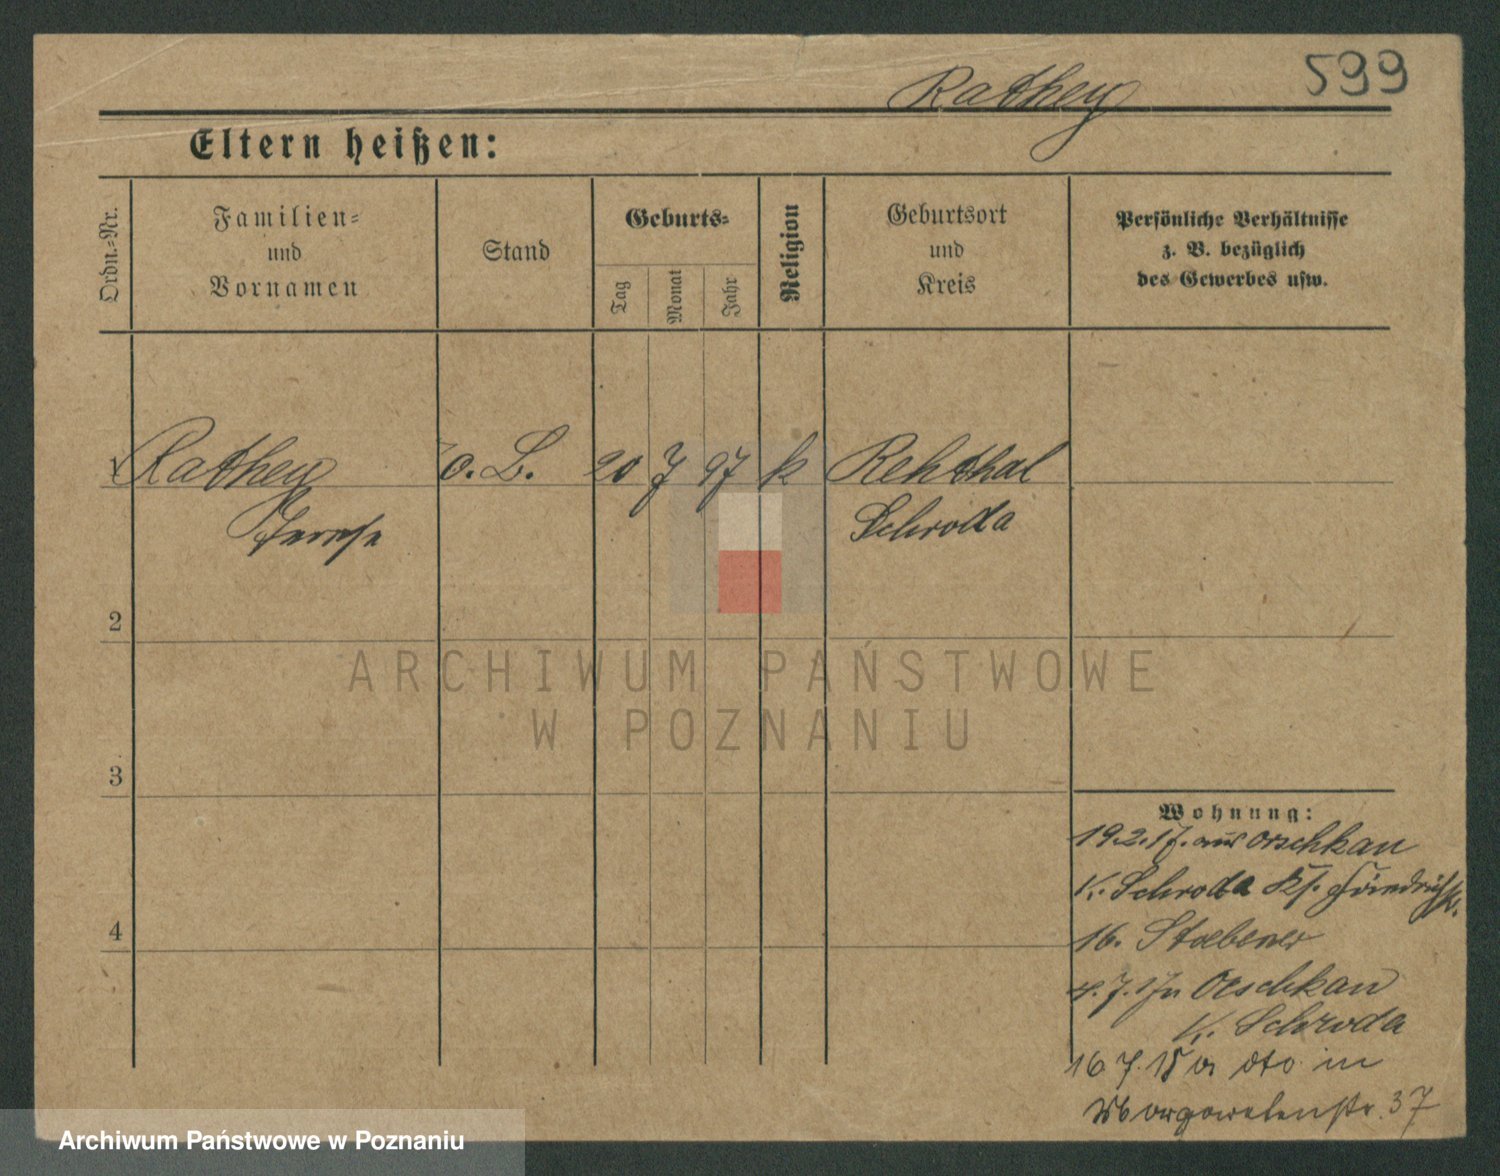 599
Rathey
Eltern heißen:
Ordn.-Nr.
Familien-
und
Vornamen
Stand
Geburts-
Tag
Monat
Jahr
Religion
Geburtsort
und
Kreis
Persönliche Verhältnisse
z. B. bezüglich
des Gewerbes usw.
1 Rathey o. B. 20 7 97 k Rehthal
Schroda
2
3
4
Wohnung:
19.2.17. aus Orschkau
K. Schroda
16. Stoebener
4.7.17 n Oeschkau
K. Schroda
16.7.18 dto in
37
ARCHIWUM PAŃSTWOWE
W POZNANIU
Archiwum Państwowe w Poznaniu